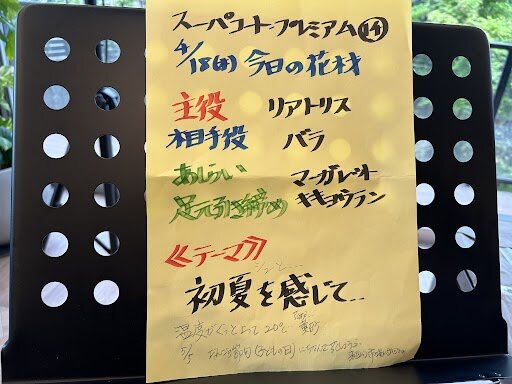 スーパーコート・プレミアム⑭
4/18(月) 今日の花材
主役 リアトリス
相手役 バラ
あしらい マーガレット
足元引き締め キキョウラン
《テーマ》
初夏を感じて..
温度がぐっと上って 20℃
5/5